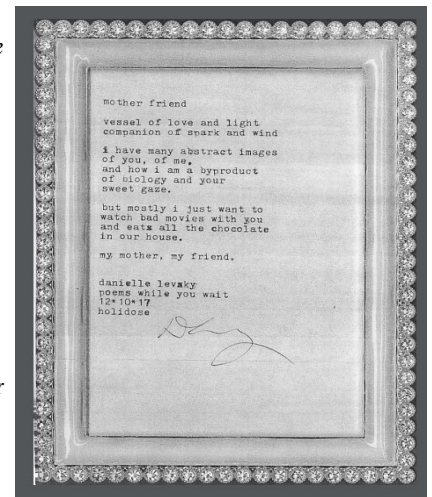 mother friend
vessel of love and light
companion of spark and wind
i have many abstract images
of you, of me,
and how i am a byproduct
of biology and your
sweet gaze.
but mostly i just want to
watch bad movies with you
and eatx all the chocolate
in our house.
my mother, my friend.
danielle levsky
poems while you wait
12*10*17
holidose